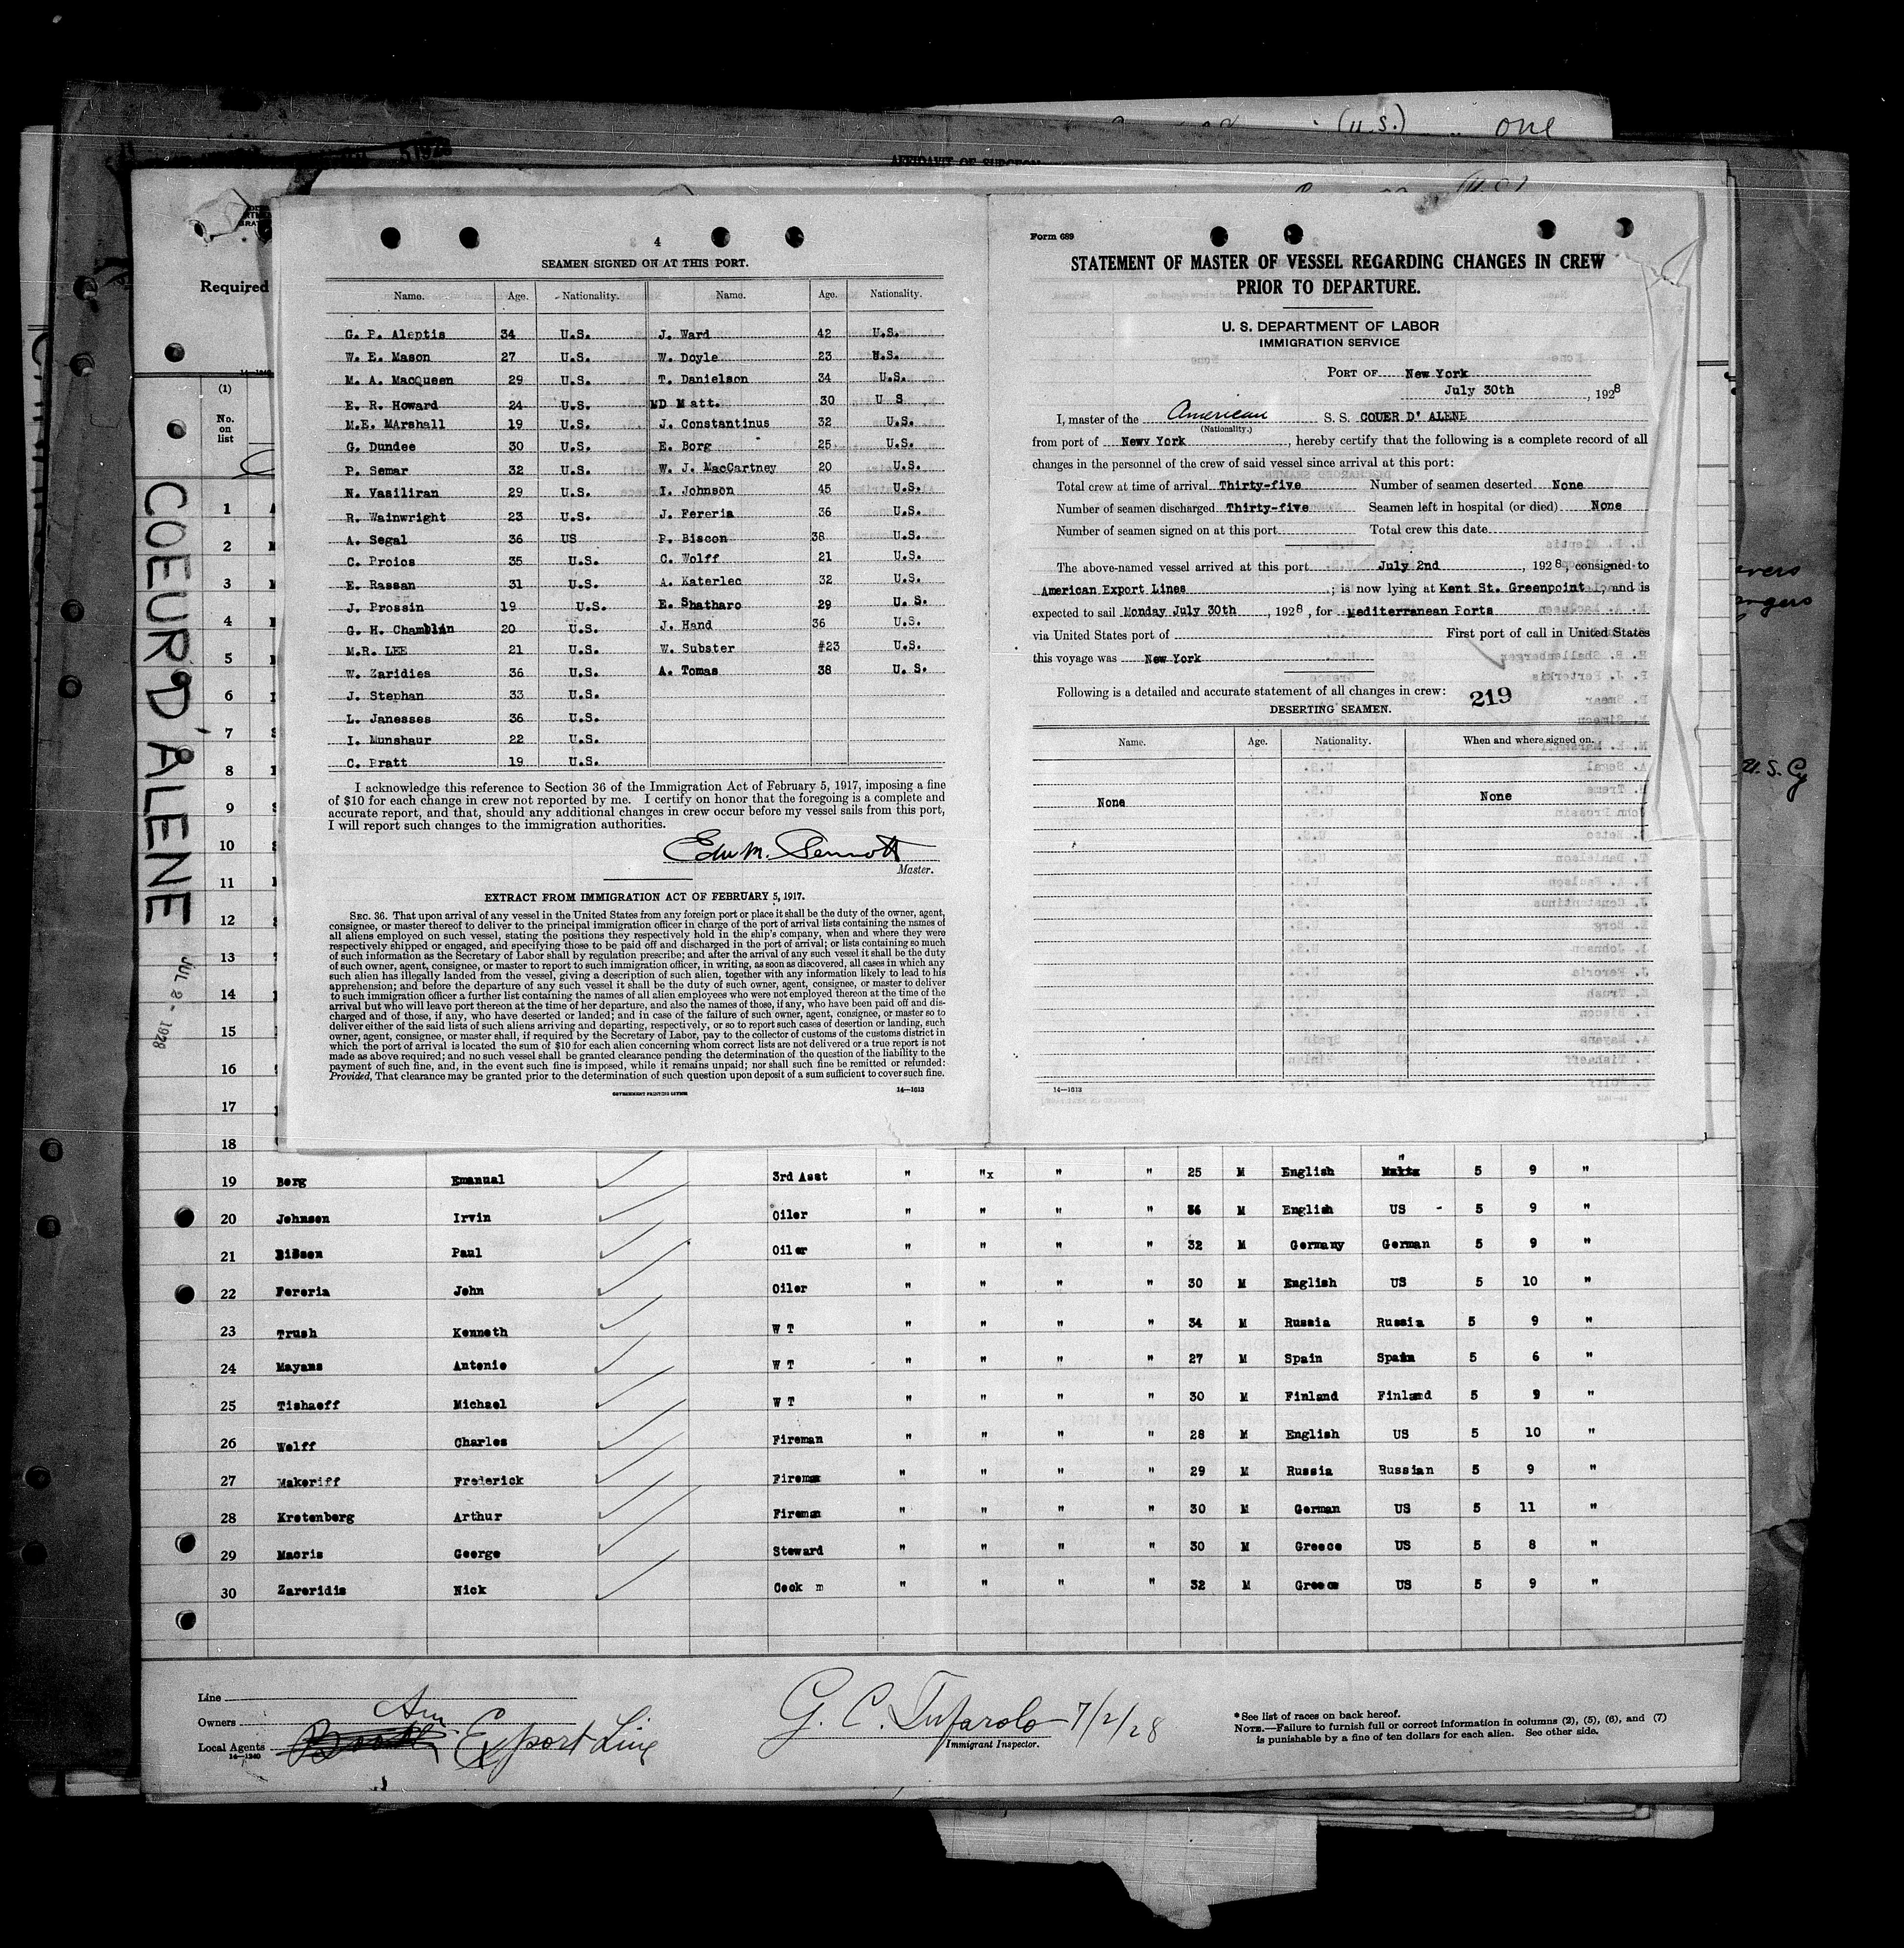 (U.S.) " one
Required
COEUR D'ALENE
JUL 2 - 1928
4
SEAMEN SIGNED ON AT THIS PORT.
Name. Age. Nationality. Name. Age. Nationality.
G. P. Aleptis 34 U.S. J. Ward 42 U.S.
W. E. Mason 27 U.S. W. Doyle 23 U.S.
M. A. MacQueen 29 U.S. T. Danielson 34 U.S.
E. R. Howard 24 U.S. MD Matt. 30 U S
M.E. MArshall 19 U.S. J. Constantinus 32 U.S.
G. Dundee 30 U.S. E. Borg 25 U.S.
P. Semar 32 U.S. W. J. MacCartney 20 U.S.
N. Vasiliran 29 U.S. I. Johnson 45 U.S.
R. Wainwright 23 U.S. J. Fereria 36 U.S.
A. Segal 36 US P. Biscon 38 U.S.
C. Proios 35 U.S. C. Wolff 21 U.S.
E. Rassan 31 U.S. A. Katerlec 32 U.S.
J. Prossin 19 U.S. E. Shatharo 29 U. S.
G. H. Chamblin 20 U.S. J. Hand 36 U.S.
M.R. LEE 21 U.S. W. Subster #23 U.S.
W. Zaridies 36 U.S. A. Tomas 38 U. S.
J. Stephan 33 U.S.
L. Janesses 36 U.S.
I. Munshaur 22 U.S.
C. Pratt 19 U.S.
I acknowledge this reference to Section 36 of the Immigration Act of February 5, 1917, imposing a fine
of $10 for each change in crew not reported by me. I certify on honor that the foregoing is a complete and
accurate report, and that, should any additional changes in crew occur before my vessel sails from this port,
I will report such changes to the immigration authorities.
Master.
EXTRACT FROM IMMIGRATION ACT OF FEBRUARY 5, 1917.
SEC. 36. That upon arrival of any vessel in the United States from any foreign port or place it shall be the duty of the owner, agent,
consignee, or master thereof to deliver to the principal immigration officer in charge of the port of arrival lists containing the names of
all aliens employed on such vessel, stating the positions they respectively hold in the ship's company, when and where they were
respectively shipped or engaged, and specifying those to be paid off and discharged in the port of arrival; or lists containing so much
of such information as the Secretary of Labor shall by regulation prescribe; and after the arrival of any such vessel it shall be the duty
of such owner, agent, consignee, or master to report to such immigration officer, in writing, as soon as discovered, all cases in which any
such alien has illegally landed from the vessel, giving a description of such alien, together with any information likely to lead to his
apprehension; and before the departure of any such vessel it shall be the duty of such owner, agent, consignee, or master to deliver
to such immigration officer a further list containing the names of all alien employees who were not employed thereon at the time of the
arrival but who will leave port thereon at the time of her departure, and also the names of those, if any, who have been paid off and dis-
charged and of those, if any, who have deserted or landed; and in case of the failure of such owner, agent, consignee, or master so to
deliver either of the said lists of such aliens arriving and departing, respectively, or so to report such cases of desertion or landing, such
owner, agent, consignee, or master shall, if required by the Secretary of Labor, pay to the collector of customs of the customs district in
which the port of arrival is located the sum of $10 for each alien concerning whom correct lists are not delivered or a true report is not
made as above required; and no such vessel shall be granted clearance pending the determination of the question of the liability to the
payment of such fine, and, in the event such fine is imposed, while it remains unpaid; nor shall such fine be remitted or refunded:
Provided, That clearance may be granted prior to the determination of such question upon deposit of a sum sufficient to cover such fine.
GOVERNMENT PRINTING OFFICE 14—1613
Form 689
STATEMENT OF MASTER OF VESSEL REGARDING CHANGES IN CREW
PRIOR TO DEPARTURE.
U. S. DEPARTMENT OF LABOR
IMMIGRATION SERVICE
PORT OF New York
July 30th, 1928
I, master of the American S. S. COUER D' ALENE
(Nationality.)
from port of Newv York, hereby certify that the following is a complete record of all
changes in the personnel of the crew of said vessel since arrival at this port:
Total crew at time of arrival Thirty-five Number of seamen deserted None
Number of seamen discharged Thirty-five Seamen left in hospital (or died) None
Number of seamen signed on at this port Total crew this date
The above-named vessel arrived at this port July 2nd, 1928, consigned to
American Export Lines; is now lying at Kent St. Greenpoint, and is
expected to sail Monday July 30th, 1928, for Mediterranean Ports
via United States port of First port of call in United States
this voyage was New York
Following is a detailed and accurate statement of all changes in crew: 219
DESERTING SEAMEN.
Name. Age. Nationality. When and where signed on.
None None
14—1613
(1)
No.
on
list
1
2
3
4
5
6
7
8
9
10
11
12
13
14
15
16
17
18
19 Borg Emanual 3rd Asst " "x " " 25 M English Malta " 5 9 "
20 Johnson Irvin Oiler " " " " 36 M English US - 5 9 "
21 Bisson Paul Oiler " " " " 32 M Germany German 5 9 "
22 Fereria John Oiler " " " " 30 M English US 5 10 "
23 Trush Kenneth W T " " " " 34 M Russia Russia 5 9 "
24 Mayans Antonio W T " " " " 27 M Spain Spain 5 6 "
25 Tishaeff Michael W T " " " " 30 M Finland Finland 5 9 "
26 Wolff Charles Fireman " " " " 28 M English US 5 10 "
27 Makeriff Frederick Fireman " " " " 29 M Russia Russian 5 9 "
28 Kretenberg Arthur Fireman " " " " 30 M German US 5 11 "
29 Macris George Steward " " " " 30 M Greece US 5 8 "
30 Zareridis Nick Cook m " " " " 32 M Greece US 5 9 "
Line
Owners Am
Local Agents Export Line
14—1240
G. C. Tufarolo 7/2/28
Immigrant Inspector.
*See list of races on back hereof.
NOTE.—Failure to furnish full or correct information in columns (2), (5), (6), and (7)
is punishable by a fine of ten dollars for each alien. See other side.
U. S. Cy